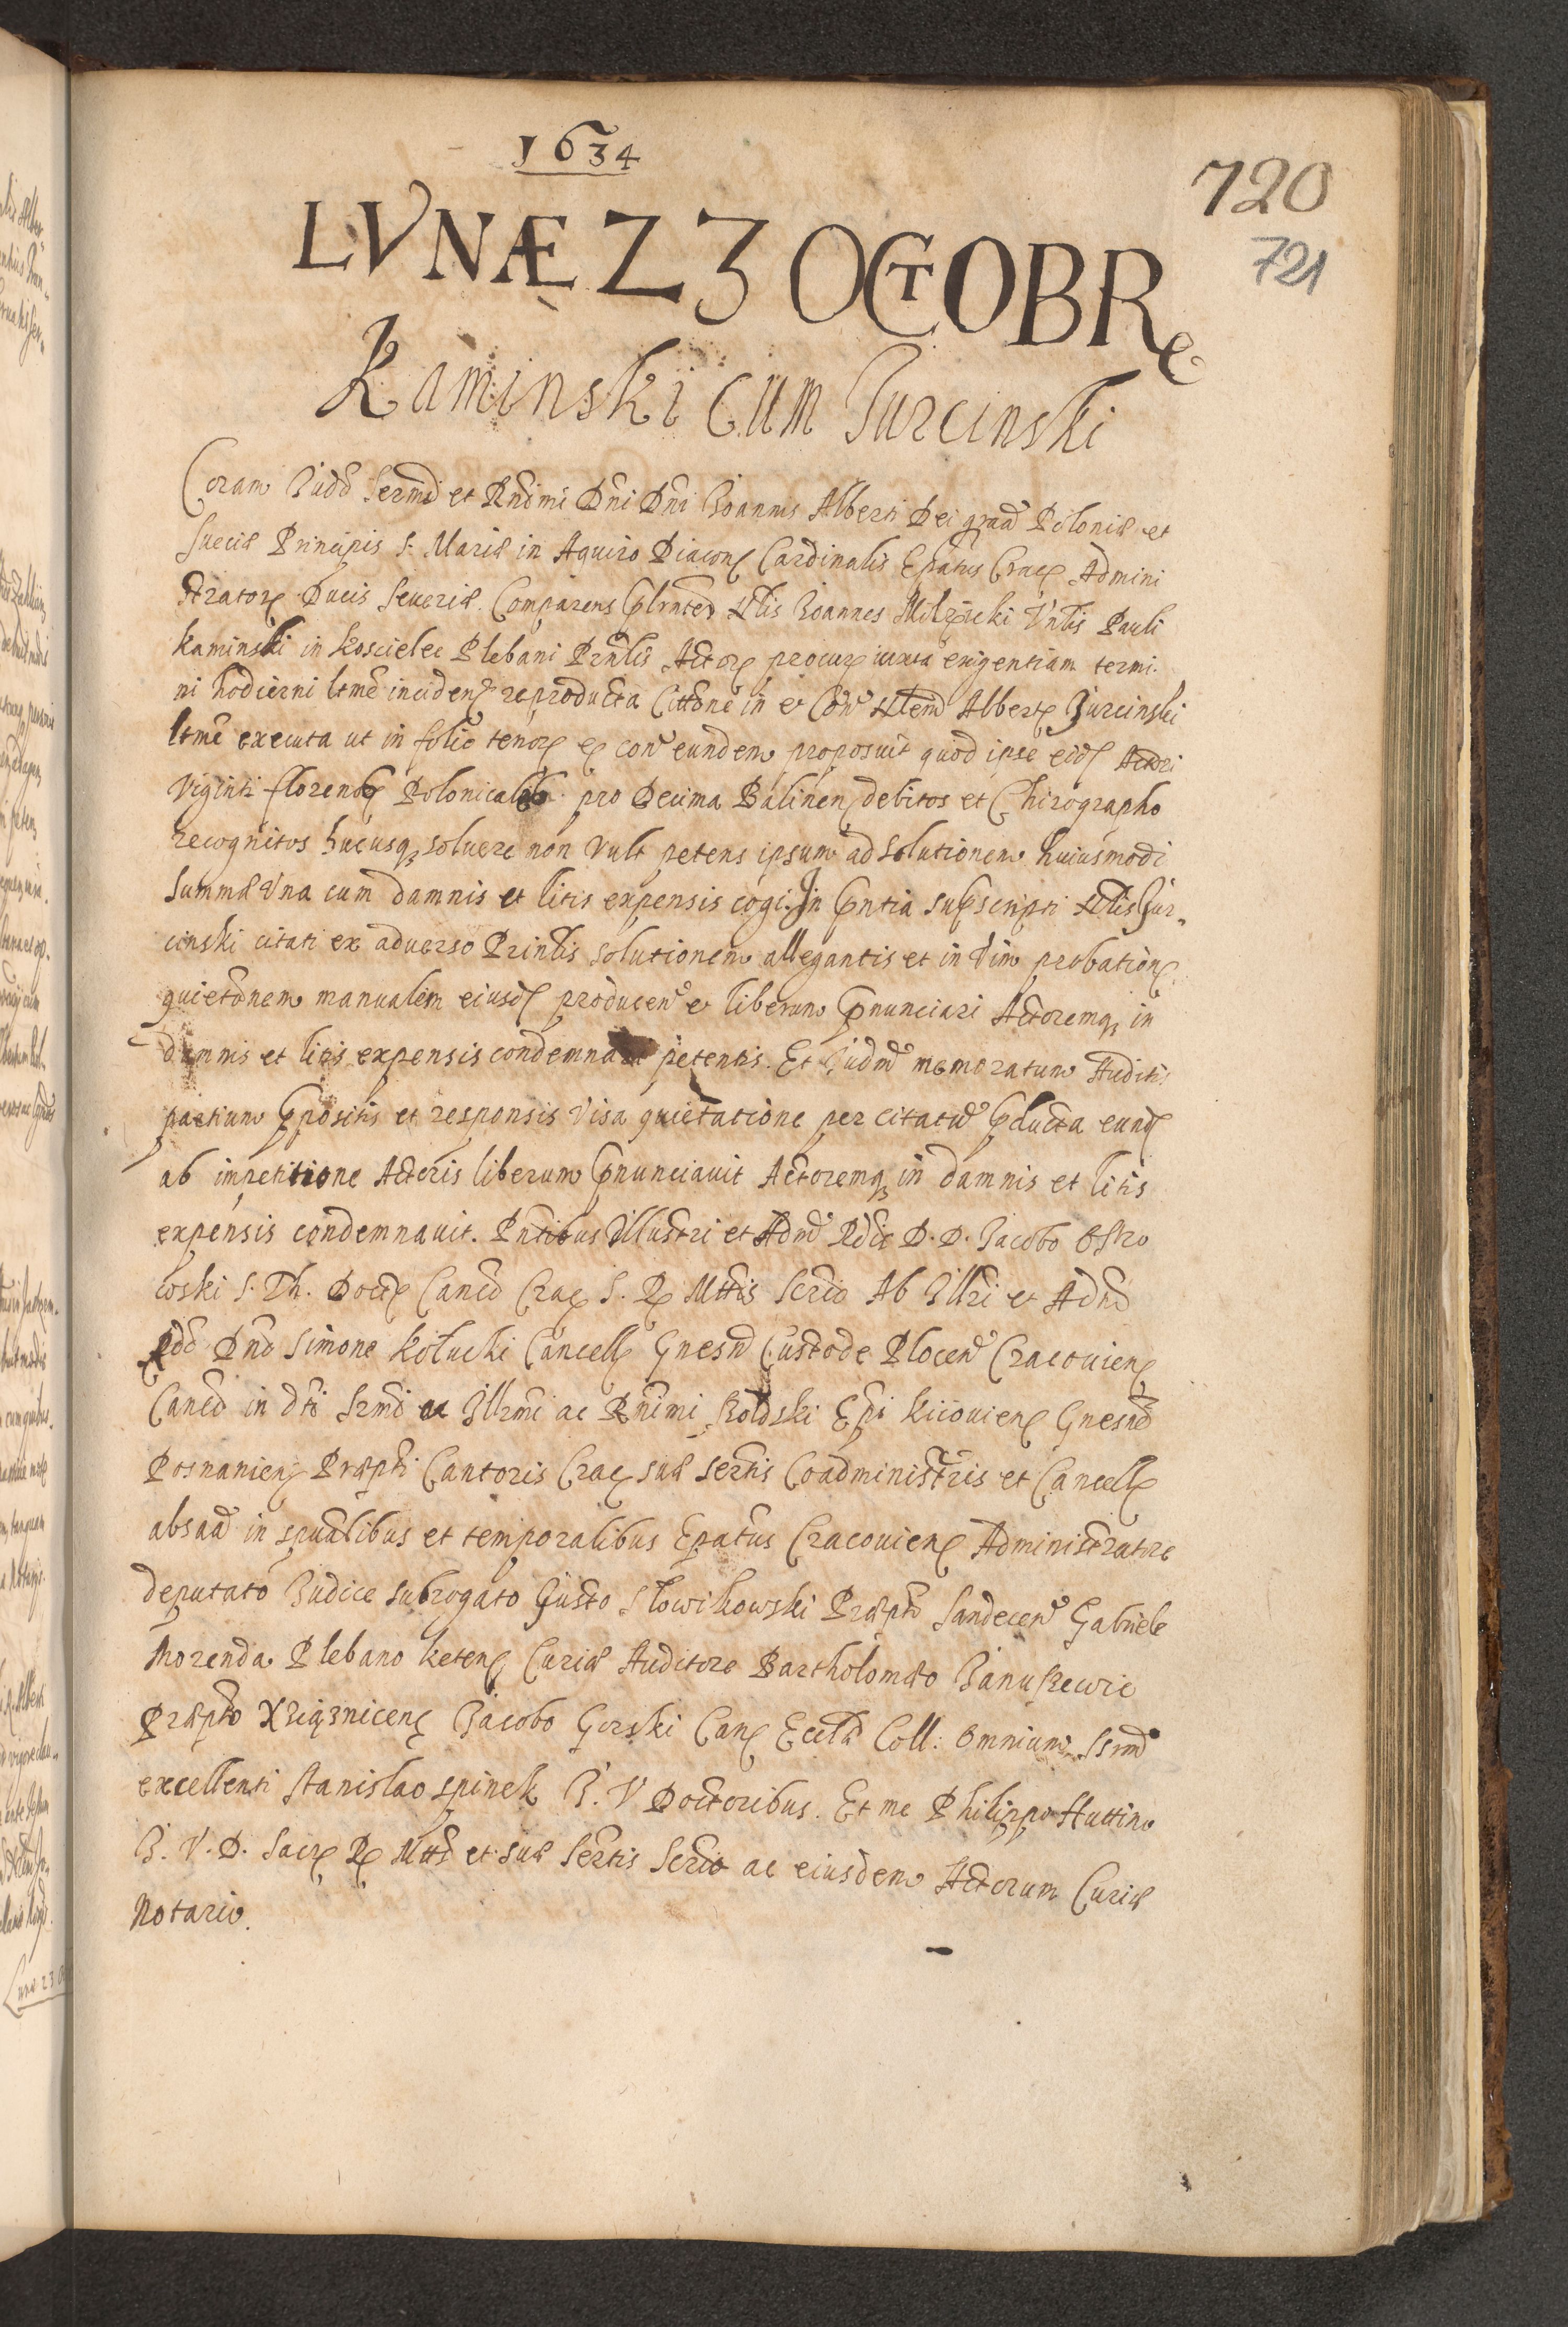 1634
720
721
LVNÆ 23 OCTOBRe
Kaminski cum Jurcinski
Coram Judõ Sermĩ et Rndmi Dni Dni Joannis Alberti Dei graã Poloniæ et
Sueciæ Principis S. Mariæ in Aquiro Diacon Cardinalis Epatus Crac Admini
stratore Ducis Seueriæ. Comparens Joannes Pauli
Kaminski in Koscielec Plebani Prnlis Actor procur iuxta exigentiam termi-
ni hodierni ltmẽ inciden reproducta Cittõne in et Con Albert Jurcinski
ltmẽ executa ut in folio tenor et con eundem proposuit quod ipse eid Actori
Viginti florenos Polonicales pro Decima Balinen debitos et Chirographo
recognitos hucusq soluere non vult petens ipsum ad solutionem huiusmodi
summæ vna cum damnis et litis expensis cogi. In pntia supscripti Jur-
cinski citati ex aduerso Prinlis solutionem allegantis et in vim probation
quietõnem manualem eiusd producen et liberum pnunciari Actoremq in
damnis et litis expensis condemnari petentis. Et Judm memoratum Auditis
partium ppositis et responsis visa quietatione per citatũ pducta eund
ab impetitione Actoris liberum pnunciauit Actoremq in damnis et litis
expensis condemnauit. Pntibus Illustri et Admd Rdis D. D. Jacobo Ostro
coski S. Th. Doct Canco Crac S. R Mttis Scrio Ab Illri et Admd
Rdo Dno Simone Kołucki Cancell Gnesn Custode Plocen Cracouien
Canco in dto Srmi ac Illrmi ac Rnimi Epi Kiiouien Gnesnen
Posnanien Præpti Cantoris Crac suæ sertis Coadministris et Cancell
absaa in spualibus et temporalibus Epatus Cracouien Administratore
deputato Judice subrogato Justo Słowikowski Præpto Sandecen Gabriele
Morenda Plebano Keten Curiæ Auditore Bartholomæo Januszewic
Præpto Xziąznicen Jacobo Gorski Can Eccla Coll: Omnium SSrm
excellenti Stanislao Spinek J. V Doctoribus. Et me Philippo Huttino
J. V. D. Sacr R Mtts et suæ Sertis Scrio ac eiusdem Actorum Curiæ
Notario.